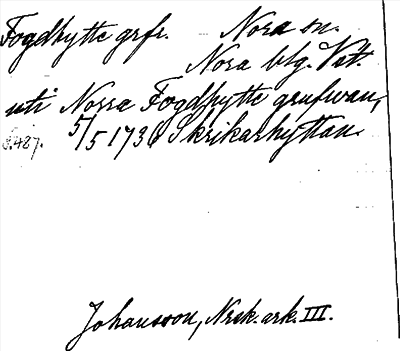 Fogdhytte grfr. Nora sn.
Nora blg. Vst.
uti Norra Fogdhytte grufwan,
s.487. 5/5 1736 Skrikarhyttan.
Johansson, Nrsk. ark. III.